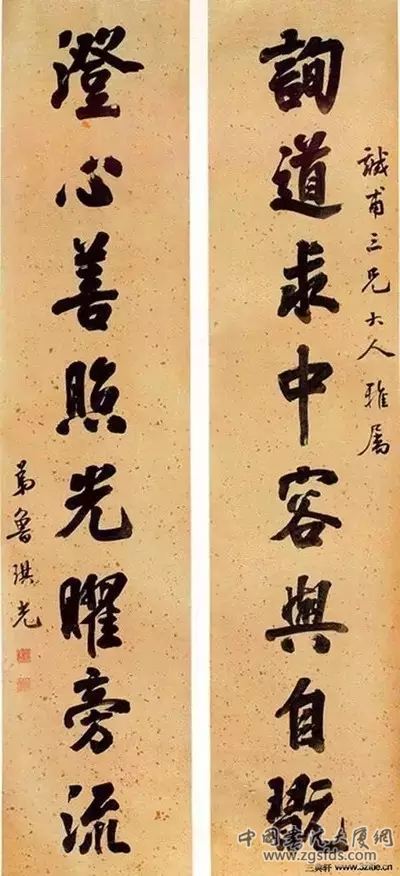 誠甫三兄大人雅属
詢道求中容與自
澄心善照光曜旁流
弟魯琪光
中國書法大厦網
www.zgsfds.com